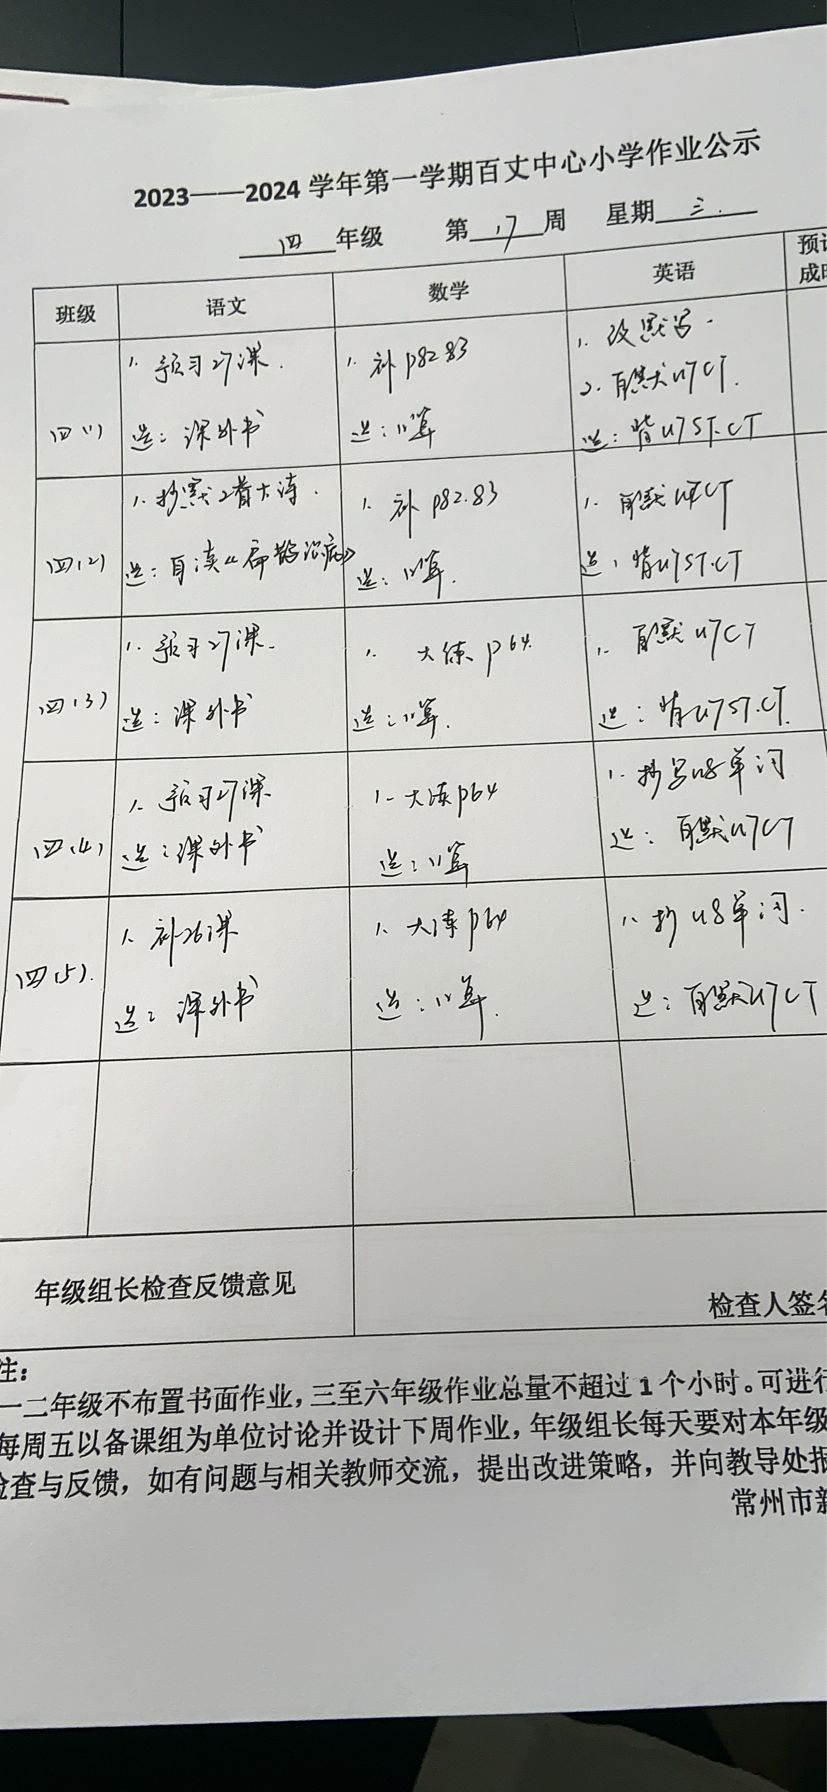 2023——2024 学年第一学期百丈中心小学作业公示
四 年级 第 17 周 星期 三.
班级 语文 数学 英语 预计
成时
四(1)
1. 预习27课.
选: 课外书
1. 补 P82 83
选: 口算
1. 改默写.
2. 自默U7CT.
选: 背U7ST.CT
四(2)
1. 抄默2首古诗.
选: 自读《扁鹊治病》
1. 补 P82.83
选: 口算.
1. 自默U7CT
选: 背U7ST.CT
四(3)
1. 预习27课.
选: 课外书
1. 大练 P64.
选: 口算.
1. 自默U7CT
选: 背U7ST.CT.
四(4)
1. 预习27课
选: 课外书
1. 大练P64
选: 口算
1. 抄写U8单词
选: 自默U7CT
四(5).
1. 补26课
选: 课外书
1. 大练P64
选: 口算.
1. 抄U8单词.
选: 自默U7CT
年级组长检查反馈意见
检查人签名
注:
一二年级不布置书面作业，三至六年级作业总量不超过 1 个小时。可进行
每周五以备课组为单位讨论并设计下周作业，年级组长每天要对本年级
检查与反馈，如有问题与相关教师交流，提出改进策略，并向教导处报
常州市新